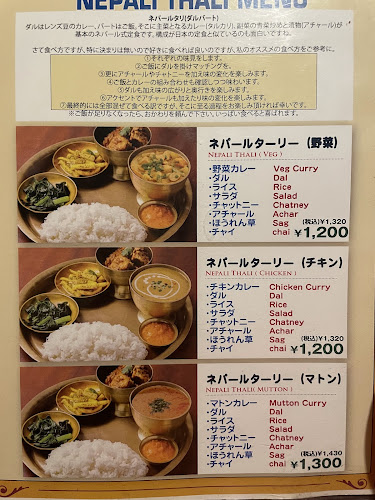 NEPALI THALI MENU
ネパールタリ(ダルバート)
ダルはレンズ豆のカレー、バートはご飯。そこに主菜となるカレー(タルカリ)、副菜の青菜炒めと漬物(アチャール)が
基本のネパール式定食です。構成が日本の定食と似ているのも面白いですね。
さて食べ方ですが、特に決まりは無いので好きに食べれば良いのですが、私のオススメの食べ方をご参考に。
①それぞれの味見をします。
②ご飯にダルを掛けマッチングを。
③更にアチャールやチャトニーを加え味の変化を楽しみます。
④ご飯とカレーの組み合わせも確認しつつ味わいます。
⑤ダルも加え味の広がりと奥行きを楽しみます。
⑥アクセントでアチャールも加えたり味の変化を楽しみます。
⑦最終的には全部混ぜて食べる訳ですが、そこに至る過程をお楽しみ頂ければ幸いです。
※ご飯が足りなくなったら、おかわりを頼んで下さい。いっぱい食べると喜ばれます。
ネパールターリー（野菜）
NEPALI THALI ( VEG )
・野菜カレー Veg Curry
・ダル Dal
・ライス Rice
・サラダ Salad
・チャットニー Chatney
・アチャール Achar
・ほうれん草 Sag (税込)¥1,320
・チャイ chai ¥1,200
ネパールターリー（チキン）
NEPALI THALI ( CHICKEN )
・チキンカレー Chicken Curry
・ダル Dal
・ライス Rice
・サラダ Salad
・チャットニー Chatney
・アチャール Achar
・ほうれん草 Sag (税込)¥1,320
・チャイ chai ¥1,200
ネパールターリー（マトン）
NEPALI THALI( MUTTON )
・マトンカレー Mutton Curry
・ダル Dal
・ライス Rice
・サラダ Salad
・チャットニー Chatney
・アチャール Achar
・ほうれん草 Sag (税込)¥1,430
・チャイ chai ¥1,300